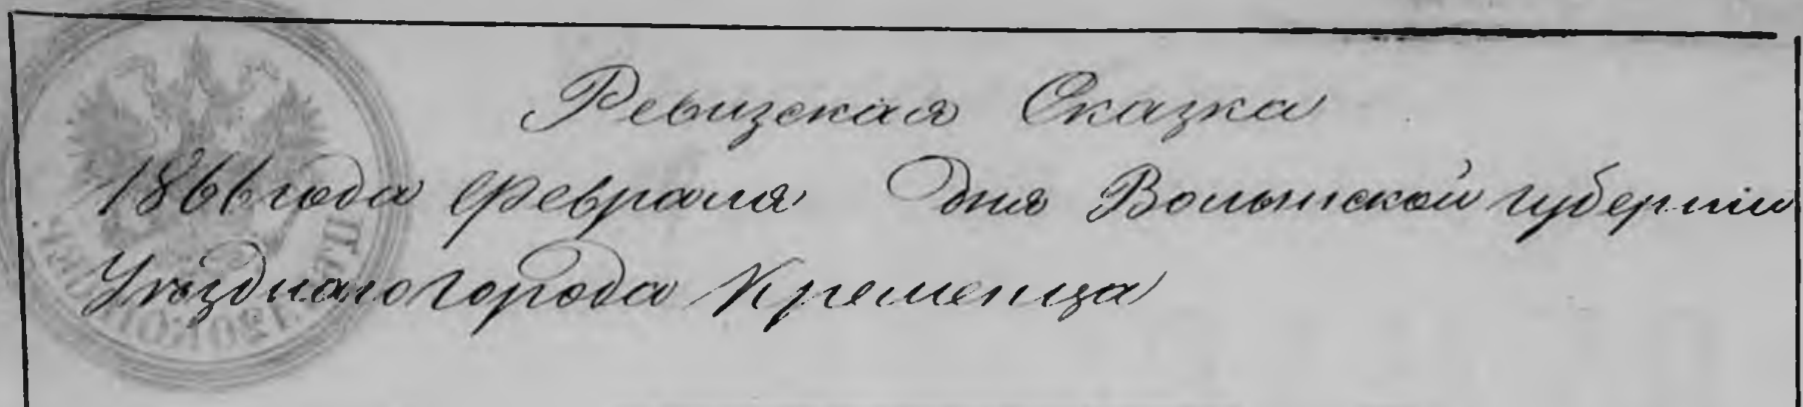 Ревизская Сказка
1866 года Февраля дня Волынской губерніи
Уѣзднаго города Кременца